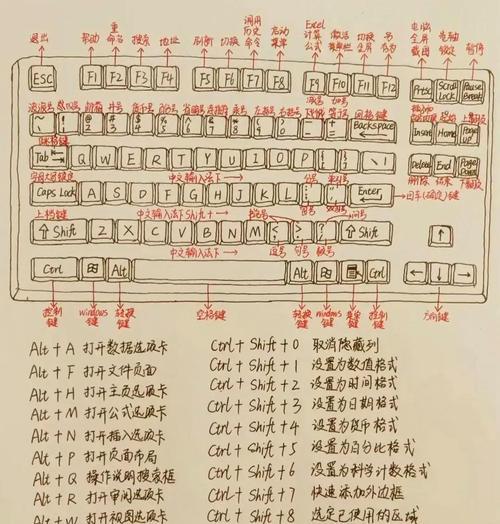 退出 帮助 重命名 搜索 地址 刷新 切换 调用历史命令 启动菜单 Excel计算公式 激活菜单栏 切换全屏 另存为 电脑全屏截图 滚动锁定 暂停
ESC F1 F2 F3 F4 F5 F6 F7 F8 F9 F10 F11 F12 Prtsc Scroll Lock Pause Break
波浪号 井号 省略号 左括号 右括号 减号 加号 回格键
~ ! @ 2 # 3 $ 4 % 5 6 7 8 9 0 Backspace Insert Home Page up
Tab Q W E R T Y U I O P \ | Delete End Page Down
中文输入法下 删除 结束 下翻页
Caps Lock A S D F G H J K L Enter 回车(确定)键
上档键 中文输入法下 Shift+ 问号
Shift Z X C V B N M < , > . ? / Shift ↑
中文输入法下 逗号 句号
Ctrl Alt Alt Ctrl ← ↓ →
控制键 windows键 转换键 空格键 转换键 windows键 菜单键 控制键 方向键
Alt + A 打开数据选项卡
Alt + F 打开文件页面
Alt + H 打开主页选项卡
Alt + M 打开公式选项卡
Alt + N 打开插入选项卡
Alt + P 打开页面布局
Alt + Q 操作说明搜索框
Alt + R 打开审阅选项卡
Alt + W 打开视图选项卡
Ctrl + Shift + 0 取消隐藏列
Ctrl + Shift + 1 设置为数值格式
Ctrl + Shift + 2 设置为时间格式
Ctrl + Shift + 3 设置为日期格式
Ctrl + Shift + 4 设置为货币格式
Ctrl + Shift + 5 设置为百分比格式
Ctrl + Shift + 6 设置为科学计数格式
Ctrl + Shift + 7 快速添加外边框
Ctrl + Shift + 8 选定已使用的区域